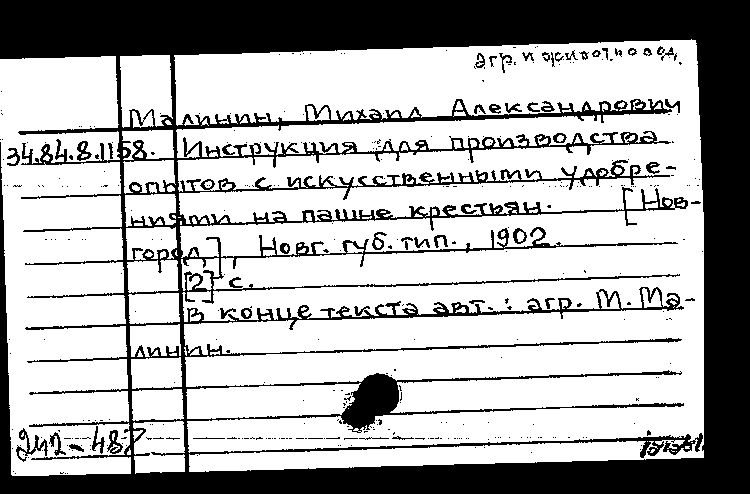 агр. и животновод.
Малинин, Михаил Александрович
34.84.8.1158. Инструкция для производства
опытов с искусственными удобре-
ниями на пашне крестьян. [Нов-
город], Новг. губ. тип., 1902.
[2] с.
В конце текста авт.: агр. М. Ма-
линин.
242-487